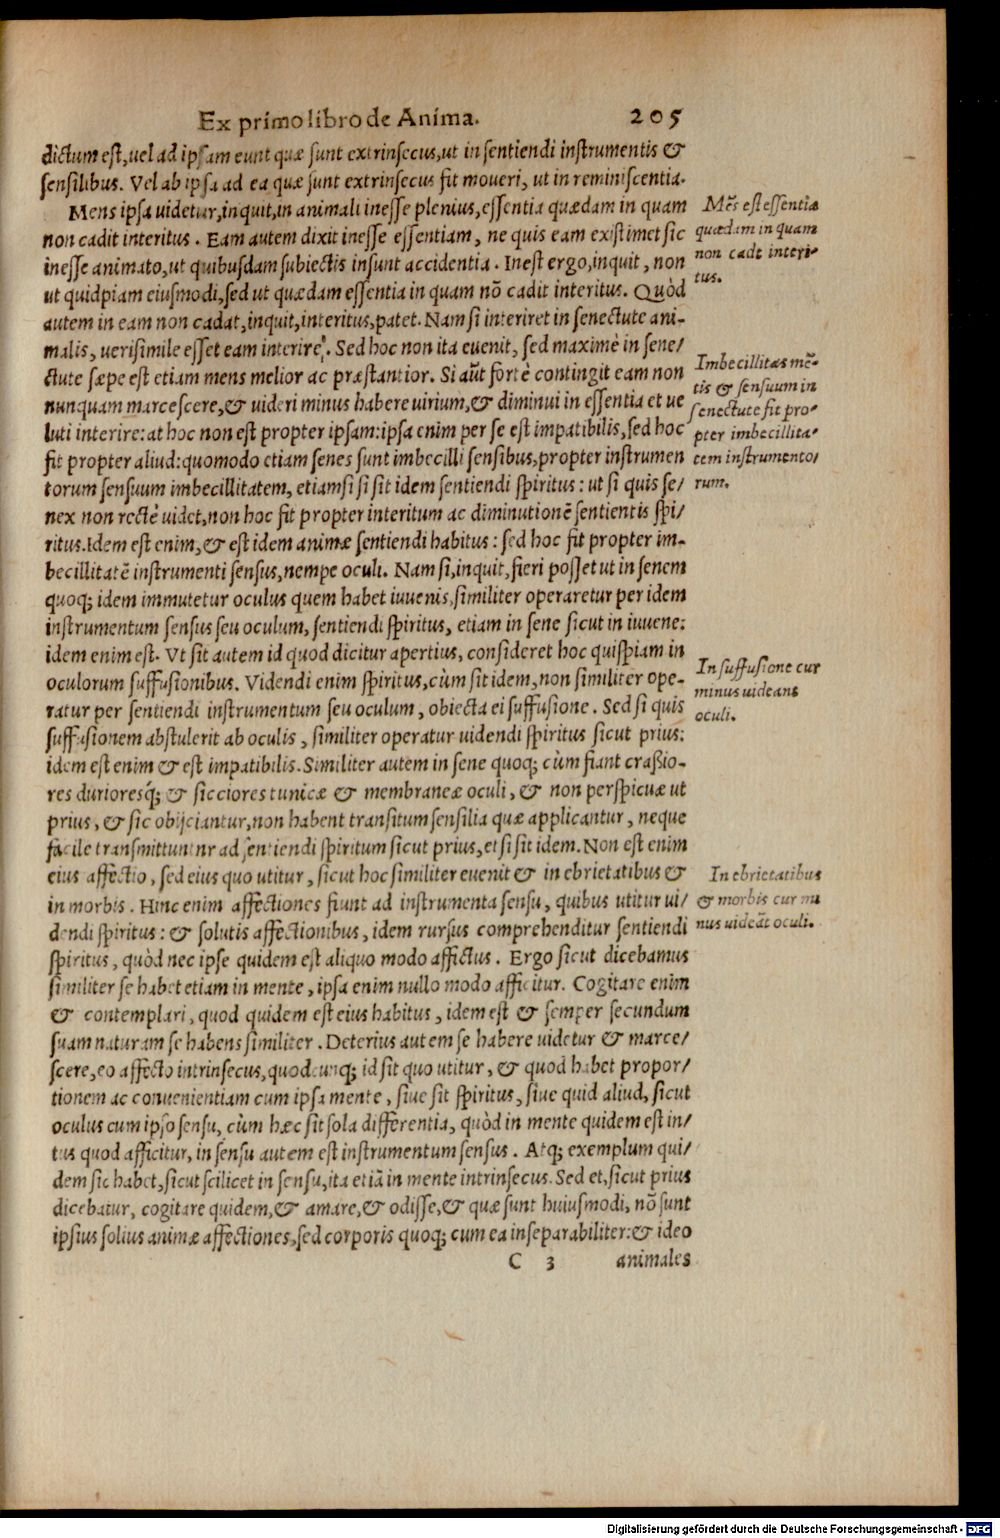 Ex primo libro de Anima. 205
dictum est, uel ad ipsam eunt quæ sunt extrinsecus, ut in sentiendi instrumentis &
sensilibus. Vel ab ipsa ad ea quæ sunt extrinsecus fit moueri, ut in reminiscentia.
Mens ipsa uidetur, inquit, in animali inesse plenius, essentia quædam in quam
non cadit interitus. Eam autem dixit inesse essentiam, ne quis eam existimet sic
inesse animato, ut quibusdam subiectis insunt accidentia. Inest ergo, inquit, non
ut quidpiam eiusmodi, sed ut quædam essentia in quam nō cadit interitus. Quòd
autem in eam non cadat, inquit, interitus, patet. Nam si interiret in senectute ani-
malis, uerisimile esset eam interire. Sed hoc non ita euenit, sed maximè in sene/
ctute sæpe est etiam mens melior ac præstantior. Si aūt fortè contingit eam non
nunquam marcescere, & uideri minus habere uirium, & diminui in essentia et ue
luti interire: at hoc non est propter ipsam: ipsa enim per se est impatibilis, sed hoc
fit propter aliud: quomodo etiam senes sunt imbecilli sensibus, propter instrumen
torum sensuum imbecillitatem, etiamsi si sit idem sentiendi spiritus: ut si quis se/
nex non rectè uidet, non hoc fit propter interitum ac diminutionē sentientis spi/
ritus. Idem est enim, & est idem animæ sentiendi habitus: sed hoc fit propter im-
becillitatē instrumenti sensus, nempe oculi. Nam si, inquit, fieri posset ut in senem
quoq; idem immutetur oculus quem habet iuuenis, similiter operaretur per idem
instrumentum sensus seu oculum, sentiendi spiritus, etiam in sene sicut in iuuene:
idem enim est. Vt sit autem id quod dicitur apertius, consideret hoc quispiam in
oculorum suffusionibus. Videndi enim spiritus, cùm sit idem, non similiter ope-
ratur per sentiendi instrumentum seu oculum, obiecta ei suffusione. Sed si quis
suffusionem abstulerit ab oculis, similiter operatur uidendi spiritus sicut prius:
idem est enim & est impatibilis. Similiter autem in sene quoq; cùm fiant craßio-
res durioreśq; & sicciores tunicæ & membraneæ oculi, & non perspicuæ ut
prius, & sic obijciantur, non habent transitum sensilia quæ applicantur, neque
facile transmittuntnr ad sentiendi spiritum sicut prius, et si sit idem. Non est enim
eius affectio, sed eius quo utitur, sicut hoc similiter euenit & in ebrietatibus &
in morbis. Hinc enim affectiones fiunt ad instrumenta sensu, quibus utitur ui/
dendi spiritus: & solutis affectionibus, idem rursus comprehenditur sentiendi
spiritus, quòd nec ipse quidem est aliquo modo affictus. Ergo sicut dicebamus
similiter se habet etiam in mente, ipsa enim nullo modo afficitur. Cogitare enim
& contemplari, quod quidem est eius habitus, idem est & semper secundum
suam naturam se habens similiter. Deterius autem se habere uidetur & marce/
scere, eo affecto intrinsecus, quodcunq; id sit quo utitur, & quod habet propor/
tionem ac conuenientiam cum ipsa mente, siue sit spiritus, siue quid aliud, sicut
oculus cum ipso sensu, cùm hæc sit sola differentia, quòd in mente quidem est in/
tus quod afficitur, in sensu autem est instrumentum sensus. Atq; exemplum qui/
dem sic habet, sicut scilicet in sensu, ita etiā in mente intrinsecus. Sed et, sicut prius
dicebatur, cogitare quidem, & amare, & odisse, & quæ sunt huiusmodi, nō sunt
ipsius solius animæ affectiones, sed corporis quoq; cum ea inseparabiliter: & ideo
C 3 animales
Mēs est essentia
quædam in quam
non cadt interi-
tus.
Imbecillitas mē-
tis & sensuum in
senectute fit pro-
pter imbecillita-
tem instrumento/
rum.
In suffusione cur
minus uideant
oculi.
In ebrietatibus
& morbis cur mi
nus uideāt oculi.
Digitalisierung gefördert durch die Deutsche Forschungsgemeinschaft - DFG